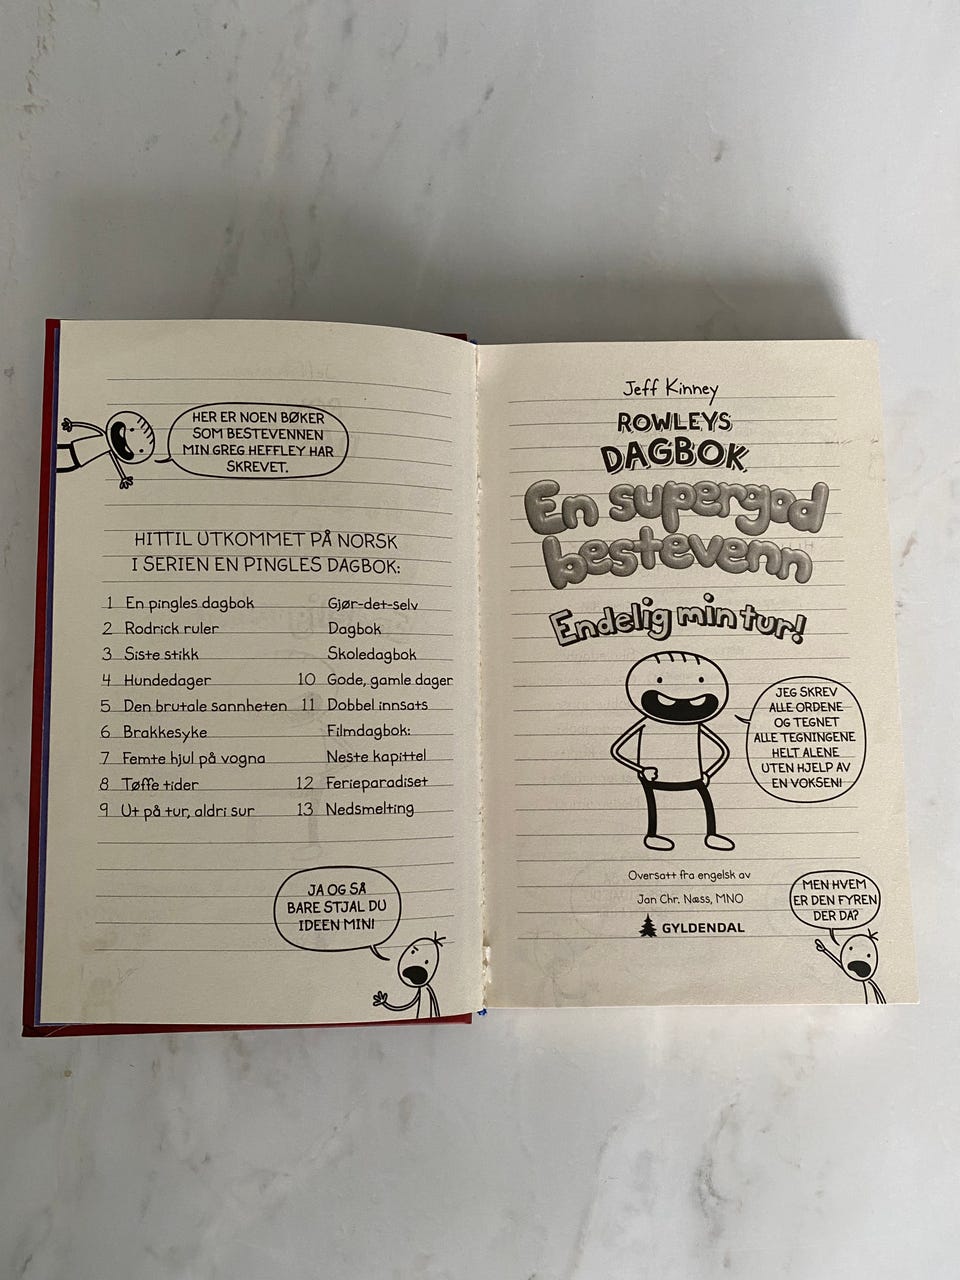 HER ER NOEN BØKER
SOM BESTEVENNEN
MIN GREG HEFFLEY HAR
SKREVET.
HITTIL UTKOMMET PÅ NORSK
I SERIEN EN PINGLES DAGBOK:
1 En pingles dagbok
2 Rodrick ruler
3 Siste stikk
4 Hundedager
5 Den brutale sannheten
6 Brakkesyke
7 Femte hjul på vogna
8 Tøffe tider
9 Ut på tur, aldri sur
Gjør-det-selv
Dagbok
Skoledagbok
10 Gode, gamle dager
11 Dobbel innsats
Filmdagbok:
Neste kapittel
12 Ferieparadiset
13 Nedsmelting
JA OG SÅ
BARE STJAL DU
IDEEN MIN!
Jeff Kinney
ROWLEYS
DAGBOK
En supergod
bestevenn
Endelig min tur!
JEG SKREV
ALLE ORDENE
OG TEGNET
ALLE TEGNINGENE
HELT ALENE
UTEN HJELP AV
EN VOKSEN!
Oversatt fra engelsk av
Jan Chr. Næss, MNO
GYLDENDAL
MEN HVEM
ER DEN FYREN
DER DA?